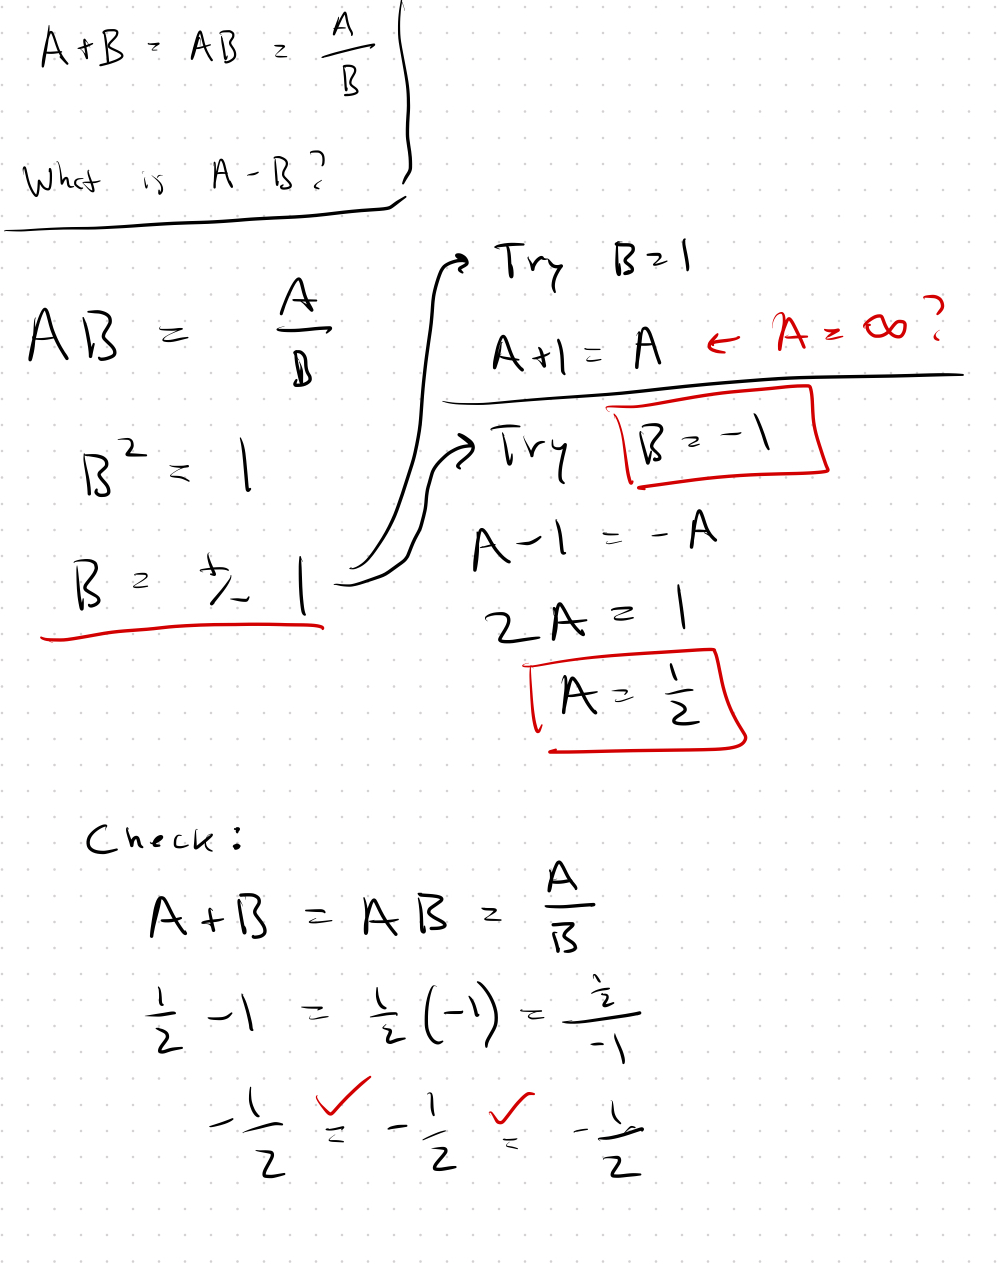 A+B = AB = A/B
What is A-B?
AB = A/B
B² = 1
B = +/- 1
Try B=1
A+1 = A ← A = ∞?
Try B = -1
A-1 = -A
2A = 1
A = 1/2
Check:
A+B = AB = A/B
1/2 -1 = 1/2 (-1) = 1/2/-1
-1/2 ✓= -1/2 ✓= -1/2